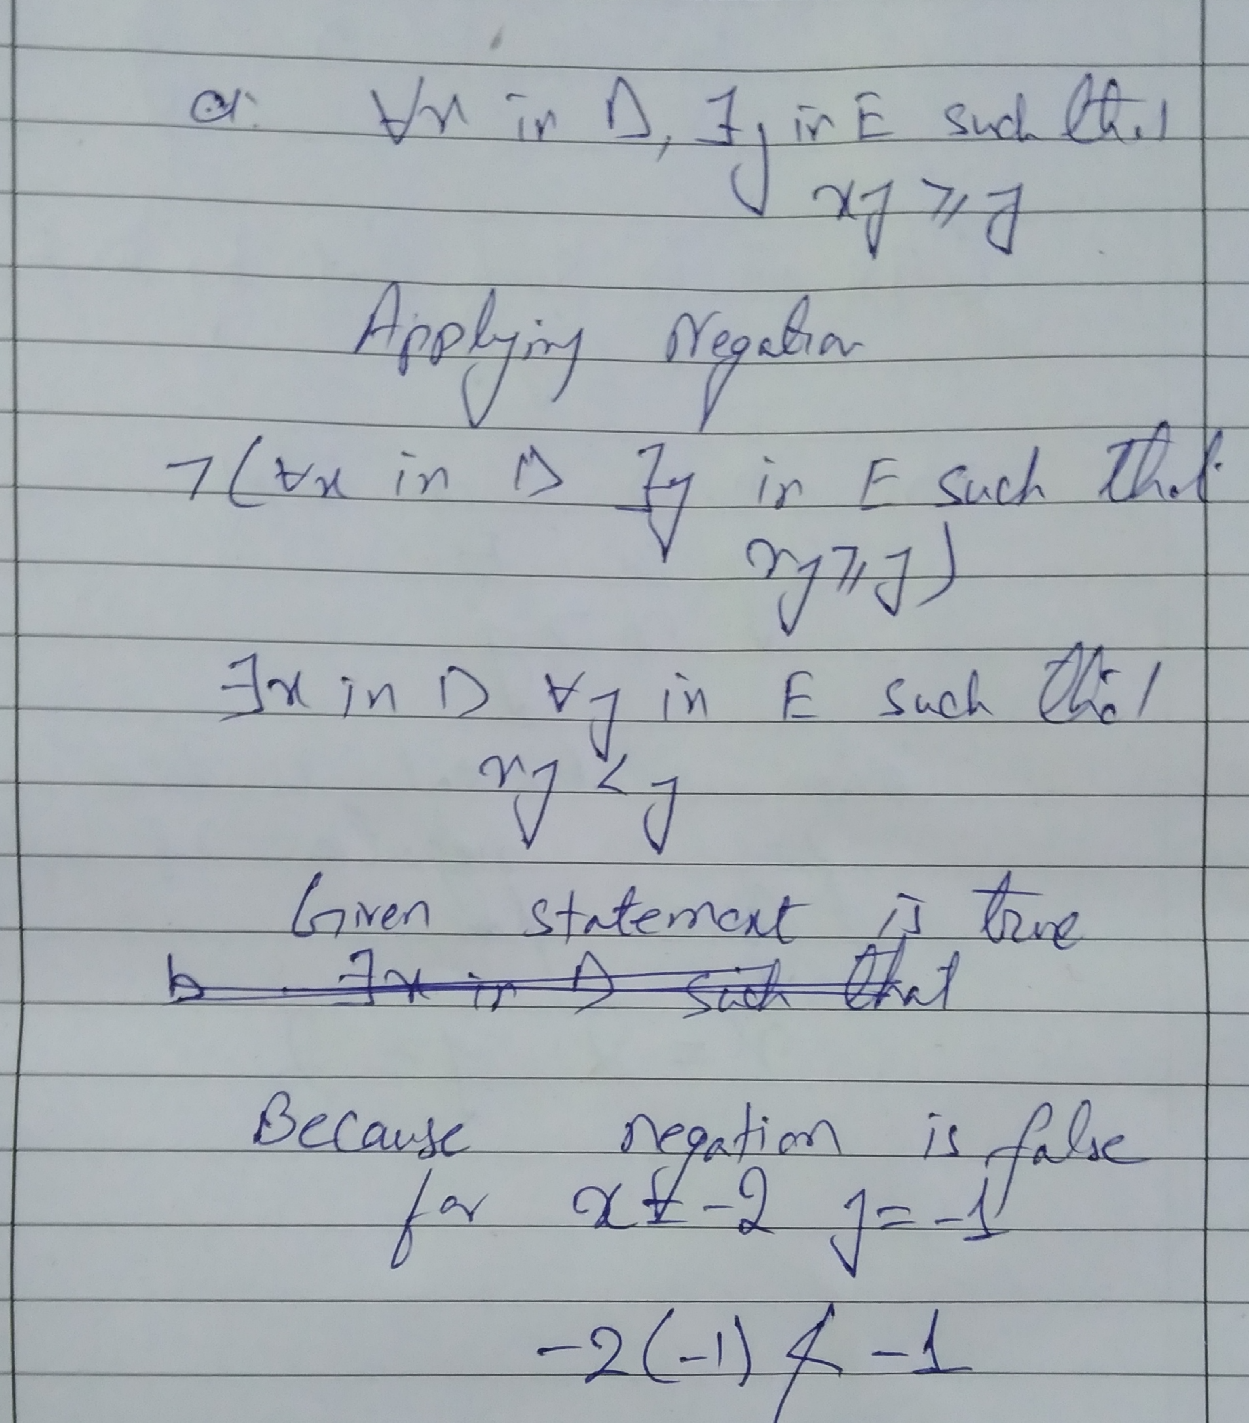 a. ∀x in D, ∃y in E such that
xy ⩾ y
Applying Negation
¬(∀x in D ∃y in E such that
xy ⩾ y)
∃x in D ∀y in E such that
xy < y
Given statement is true
b ∃x in D such that
Because negation is false
for x = -2 y = -1
-2(-1) ≮ -1